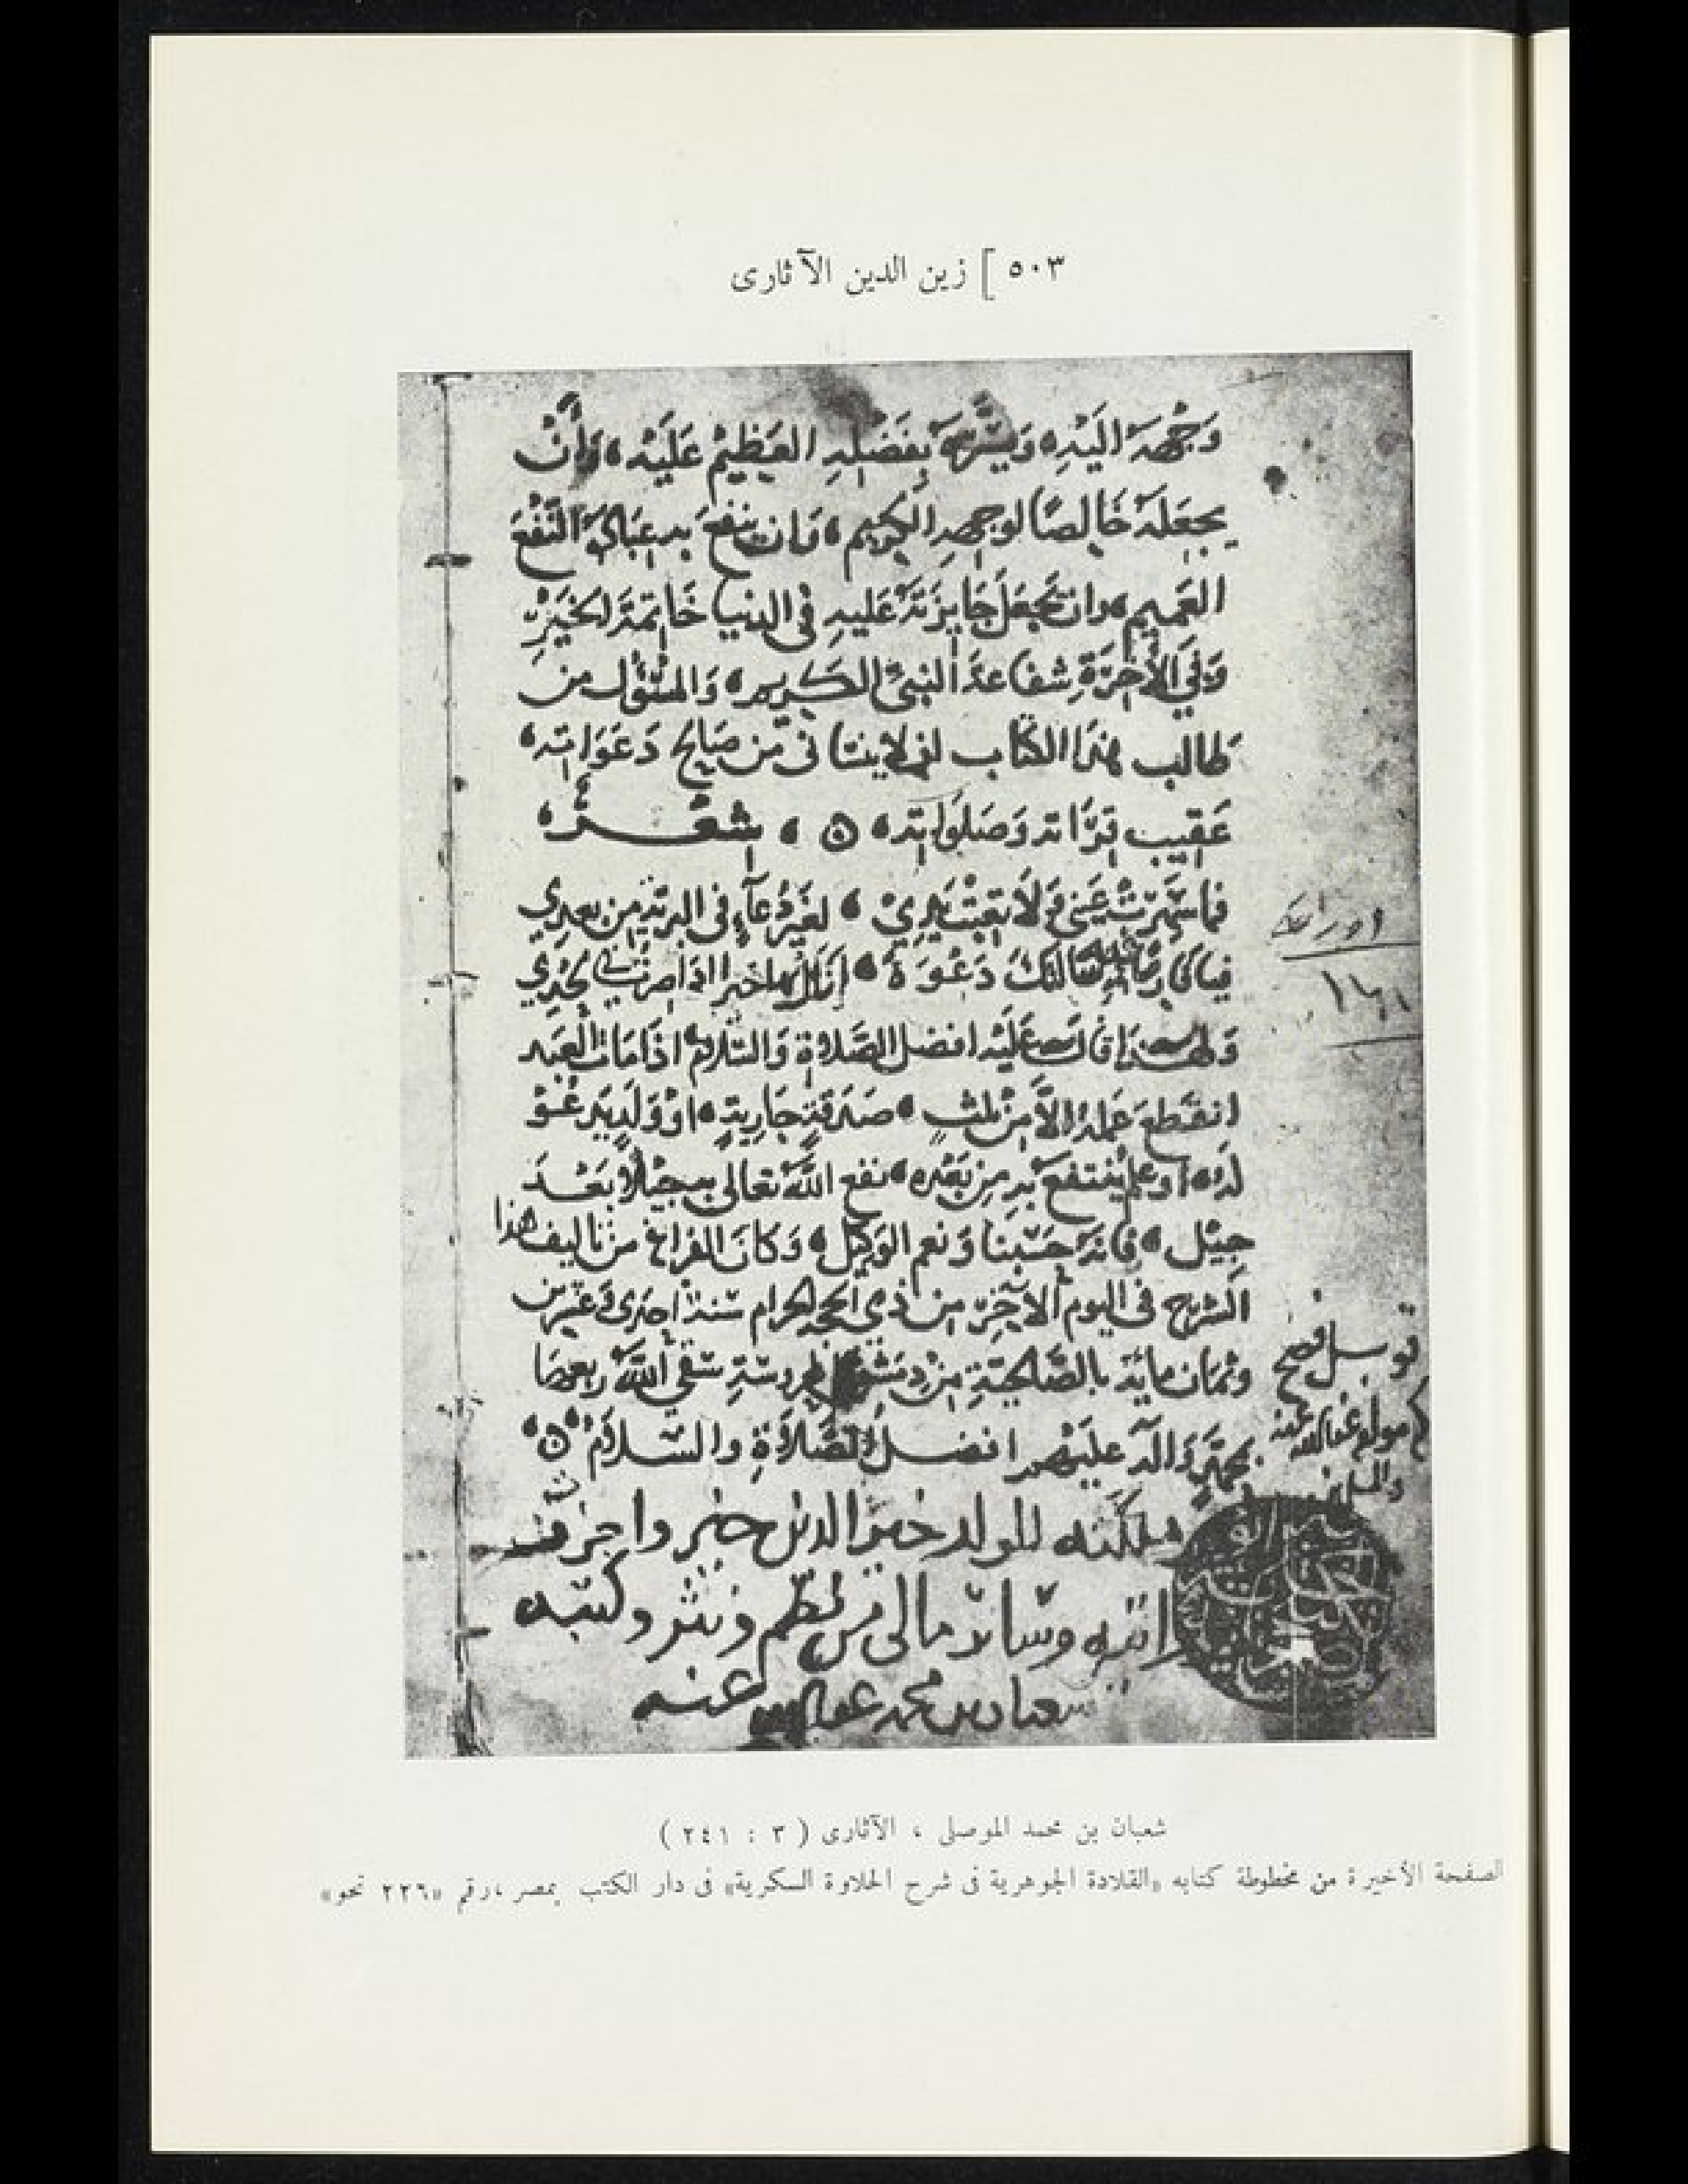 ٥٠٣ ] زين الدين الآثارى
وَجْهَهُ اليْهِ وَيُسَّرهُ بفَضْلِهِ العَظِيْمِ عَلَيْهِ، وَأَنْ
يجعَلَهُ خَالِصًا لوجهِهِ الكريم، وَان ينفعَ به عِبَادَهُ النَّفْعَ
العَميم، وان يَجْعَلَ جَايزَتَهُ عَليهِ في الدنيا خَاتمَةَ الخَيْرِ
وَفي الأخِرَةِ شفاعةَ النبيّ الكريم، وَالمسْئول من
طالب هذا الكتاب ان لاينسانى من صَالح دَعَوَاتِه،
عَقِيب قِرَاته وَصَلَوَاتِه، شعْر،
فما سَهِرَتْ عَيني وَلَا تعبتْ يَدِيْ، لغَيْرِ دُعَآءٍ في البرية من بعدي
فيا قاريًا سَالتكَ دَعْوَةً، انالُ بها خيرا اذا صرت في لحدي
وَلهذا قال عَلَيْه افضل الصَّلاةِ وَالسَّلامُ اذَا مَات العَبد
انقَطعَ عَملهُ الاَّ مِنْ ثلثٍ، صَدقةٍ جَاريةٍ، اوْ وَلَدٍ يَدعُوْ
لَهُ، او علمٍ يُنتفعُ بهِ مِن بَعْدِه، نفع اللَّهُ تعالى به جِيْلاً بَعْدَ
جِيْل، فانه حَسْبنا وَنعم الوَكيل، وَكانَ الفراغ من تاليف هذا
الشرح في اليوم الآخِر من ذي الحجة الحرام سَنة احدى وَعشرين
وثمان مائة بالصَّالحيّةِ مِنْ دِمَشق المحروسَةِ سَقى اللَّهُ ربعها
بمحمّدٍ وَآلهِ عليهم افضل الصَّلاَةِ والسَّلاَمُ
ملكته للولد خير الدين خضر واجزت
رواىته وسائر مالى من نظم ونثر وكتبه
شعبان بن محمد عفا الله عنه
اوراقه
قوبل فصح
شعبان بن محمد الموصلى ، الآثارى ( ٣ : ٢٤١ )
الصفحة الأخيرة من مخطوطة كتابه «القلادة الجوهرية فى شرح الحلاوة السكرية» فى دار الكتب بمصر ، رقم «٢٢٦ نحو»